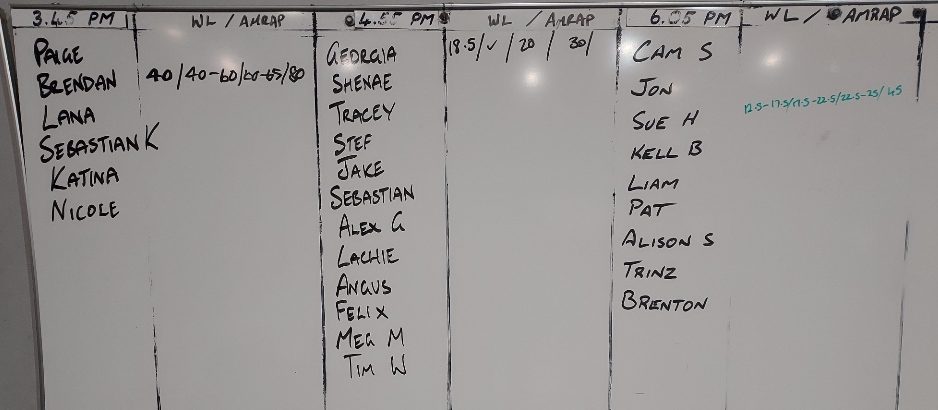 3.45 PM WL / AMRAP
PAIGE
BRENDAN 40/40-60/60-65/80
LANA
SEBASTIAN K
KATINA
NICOLE
4.55 PM WL / AMRAP
GEORGIA 18.5/✓/20/30/
SHENAE
TRACEY
STEF
JAKE
SEBASTIAN
ALEX G
LACHIE
ANGUS
FELIX
MEG M
TIM W
6.05 PM WL / AMRAP
CAM S
JON
SUE H 12.5-17.5/17.5-22.5/22.5-25/45
KELL B
LIAM
PAT
ALISON S
TRINZ
BRENTON